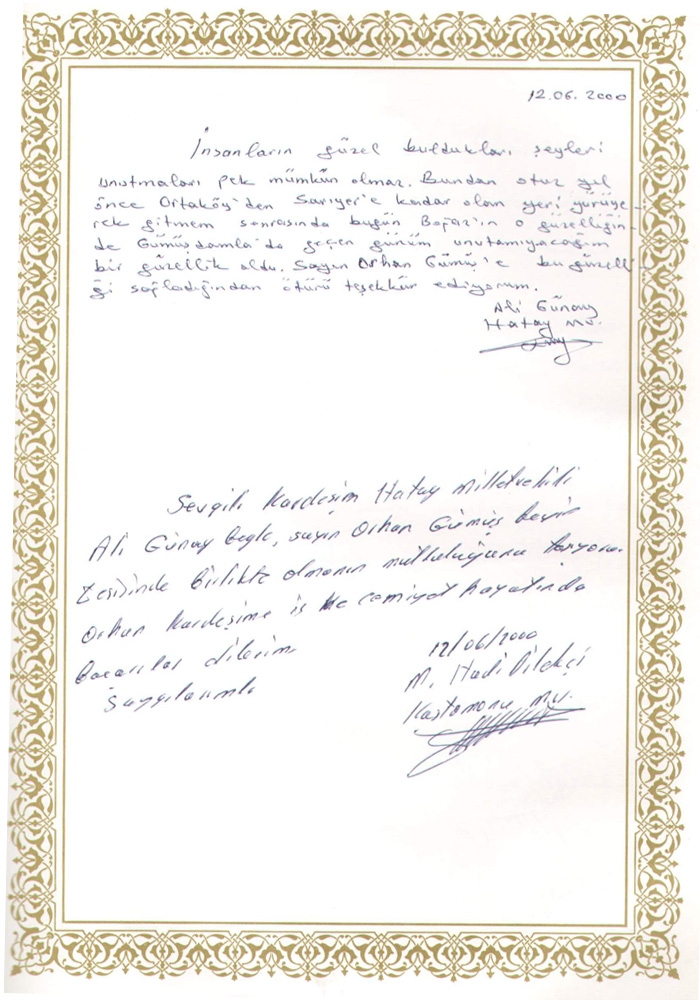 12.06.2000
İnsanların güzel buldukları şeyleri
unutmaları pek mümkün olmaz. Bundan otuz yıl
önce Ortaköy'den Sarıyer'e kadar olan yeri yürüye-
rek gitmem sonrasında bugün Boğaz'ın o güzelliğin-
de Gümüşdamla'da geçen günüm unutamıyacağım
bir güzellik oldu. Sayın Orhan Gümüş'e bu güzelli
ği sağladığından ötürü teşekkür ediyorum.
Ali Günay
Hatay Mv.
Sevgili Kardeşim Hatay Milletvekili
Ali Günay Beyle, sayın Orhan Gümüş beyin
tesisinde birlikte olmanın mutluluğunu taşıyorum.
Orhan Kardeşime iş ve cemiyet hayatında
başarılar dilerim
Saygılarımla
12/06/2000
M. Hadi Dilekçi
Kastamonu Mv.